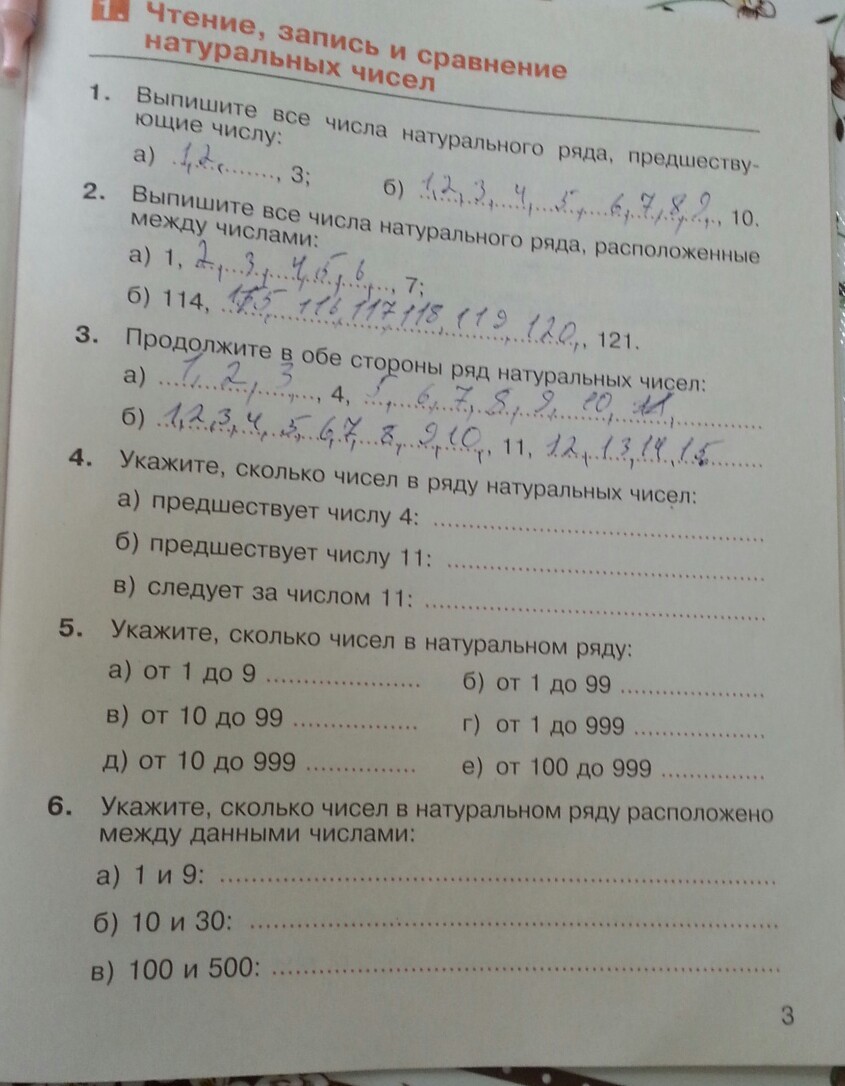 1. Чтение, запись и сравнение
натуральных чисел
1. Выпишите все числа натурального ряда, предшеству-
ющие числу:
а) 1, 2, ........, 3; б) 1, 2, 3, 4, 5, 6, 7, 8, 9, 10.
2. Выпишите все числа натурального ряда, расположенные
между числами:
а) 1, 2, 3, 4, 5, 6, 7;
б) 114, 115, 116, 117, 118, 119, 120, 121.
3. Продолжите в обе стороны ряд натуральных чисел:
а) 1, 2, 3, 4, 5, 6, 7, 8, 9, 10, 11, ............
б) 1, 2, 3, 4, 5, 6, 7, 8, 9, 10, 11, 12, 13, 14, 15 ........
4. Укажите, сколько чисел в ряду натуральных чисел:
а) предшествует числу 4: ........................................
б) предшествует числу 11: ........................................
в) следует за числом 11: ........................................
5. Укажите, сколько чисел в натуральном ряду:
а) от 1 до 9 .................... б) от 1 до 99 ....................
в) от 10 до 99 .................... г) от 1 до 999 ....................
д) от 10 до 999 .................... е) от 100 до 999 ....................
6. Укажите, сколько чисел в натуральном ряду расположено
между данными числами:
а) 1 и 9: ........................................
б) 10 и 30: ........................................
в) 100 и 500: ........................................
3